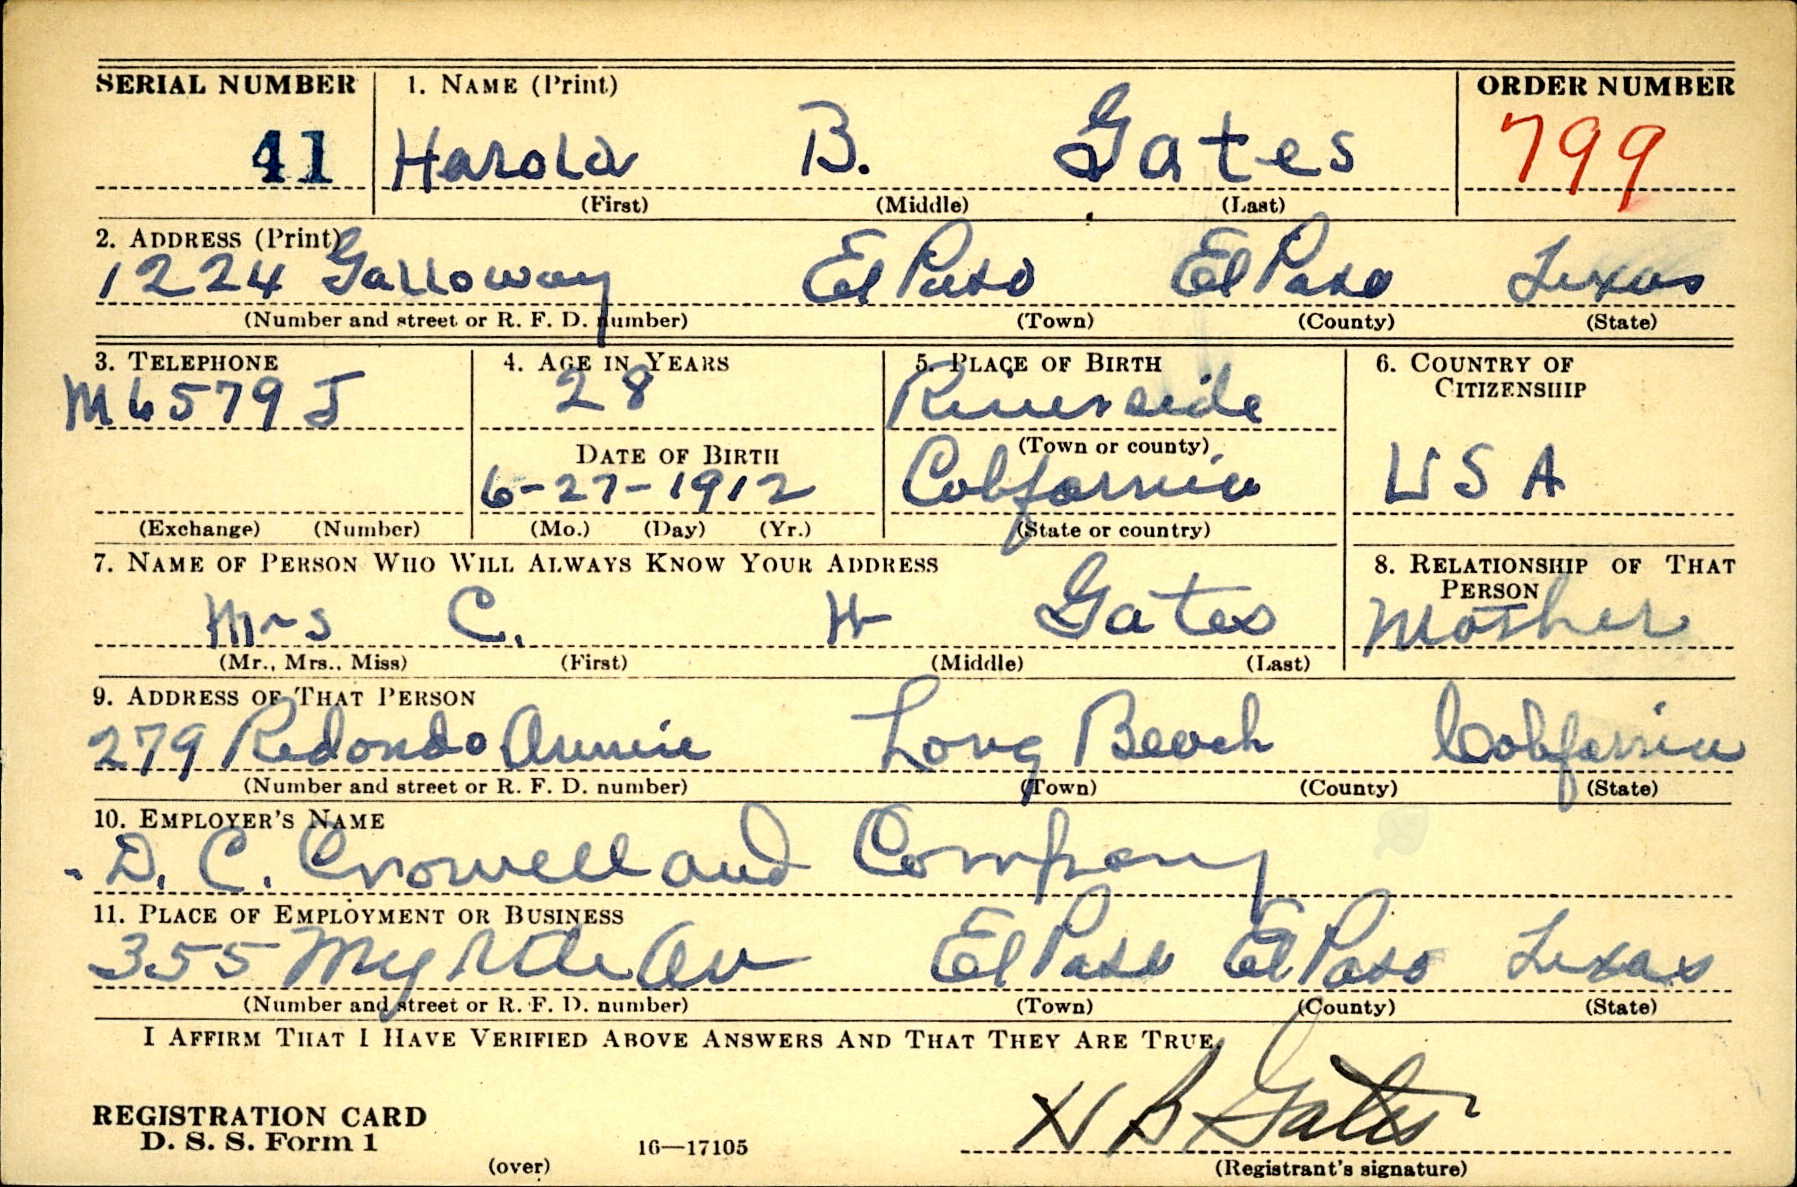 SERIAL NUMBER 1. NAME (Print) ORDER NUMBER
41 Harold B. Gates 799
(First) (Middle) (Last)
2. ADDRESS (Print)
1224 Galloway El Paso El Paso Texas
(Number and street or R. F. D. number) (Town) (County) (State)
3. TELEPHONE 4. AGE IN YEARS 5. PLACE OF BIRTH 6. COUNTRY OF CITIZENSHIP
M 6579 J 28 Riverside
DATE OF BIRTH (Town or county)
6-27-1912 California USA
(Exchange) (Number) (Mo.) (Day) (Yr.) (State or country)
7. NAME OF PERSON WHO WILL ALWAYS KNOW YOUR ADDRESS 8. RELATIONSHIP OF THAT PERSON
Mrs C. H Gates Mother
(Mr., Mrs., Miss) (First) (Middle) (Last)
9. ADDRESS OF THAT PERSON
279 Redondo Avenue Long Beach California
(Number and street or R. F. D. number) (Town) (County) (State)
10. EMPLOYER'S NAME
D. C. Crowell and Company
11. PLACE OF EMPLOYMENT OR BUSINESS
355 Myrtle Av El Paso El Paso Texas
(Number and street or R. F. D. number) (Town) (County) (State)
I AFFIRM THAT I HAVE VERIFIED ABOVE ANSWERS AND THAT THEY ARE TRUE.
REGISTRATION CARD H B Gates
D. S. S. Form 1 16—17105
(over) (Registrant's signature)